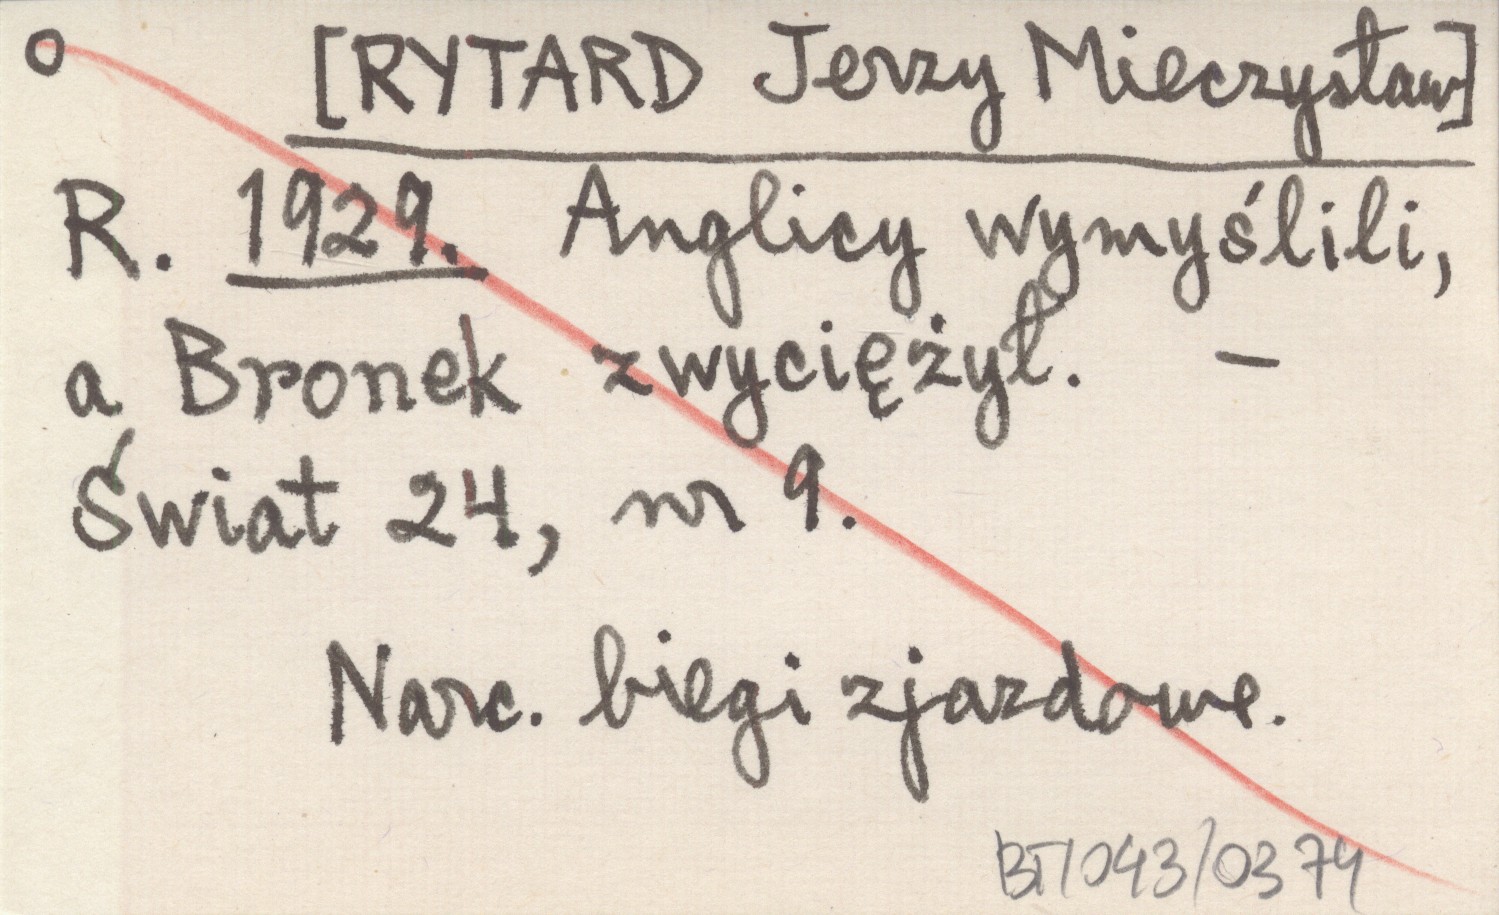 o [RYTARD Jerzy Mieczysław]
R. 1929. Anglicy wymyślili,
a Bronek zwyciężył. –
Świat 24, nr 9.
Narc. biegi zjazdowe.
BT/043/0374